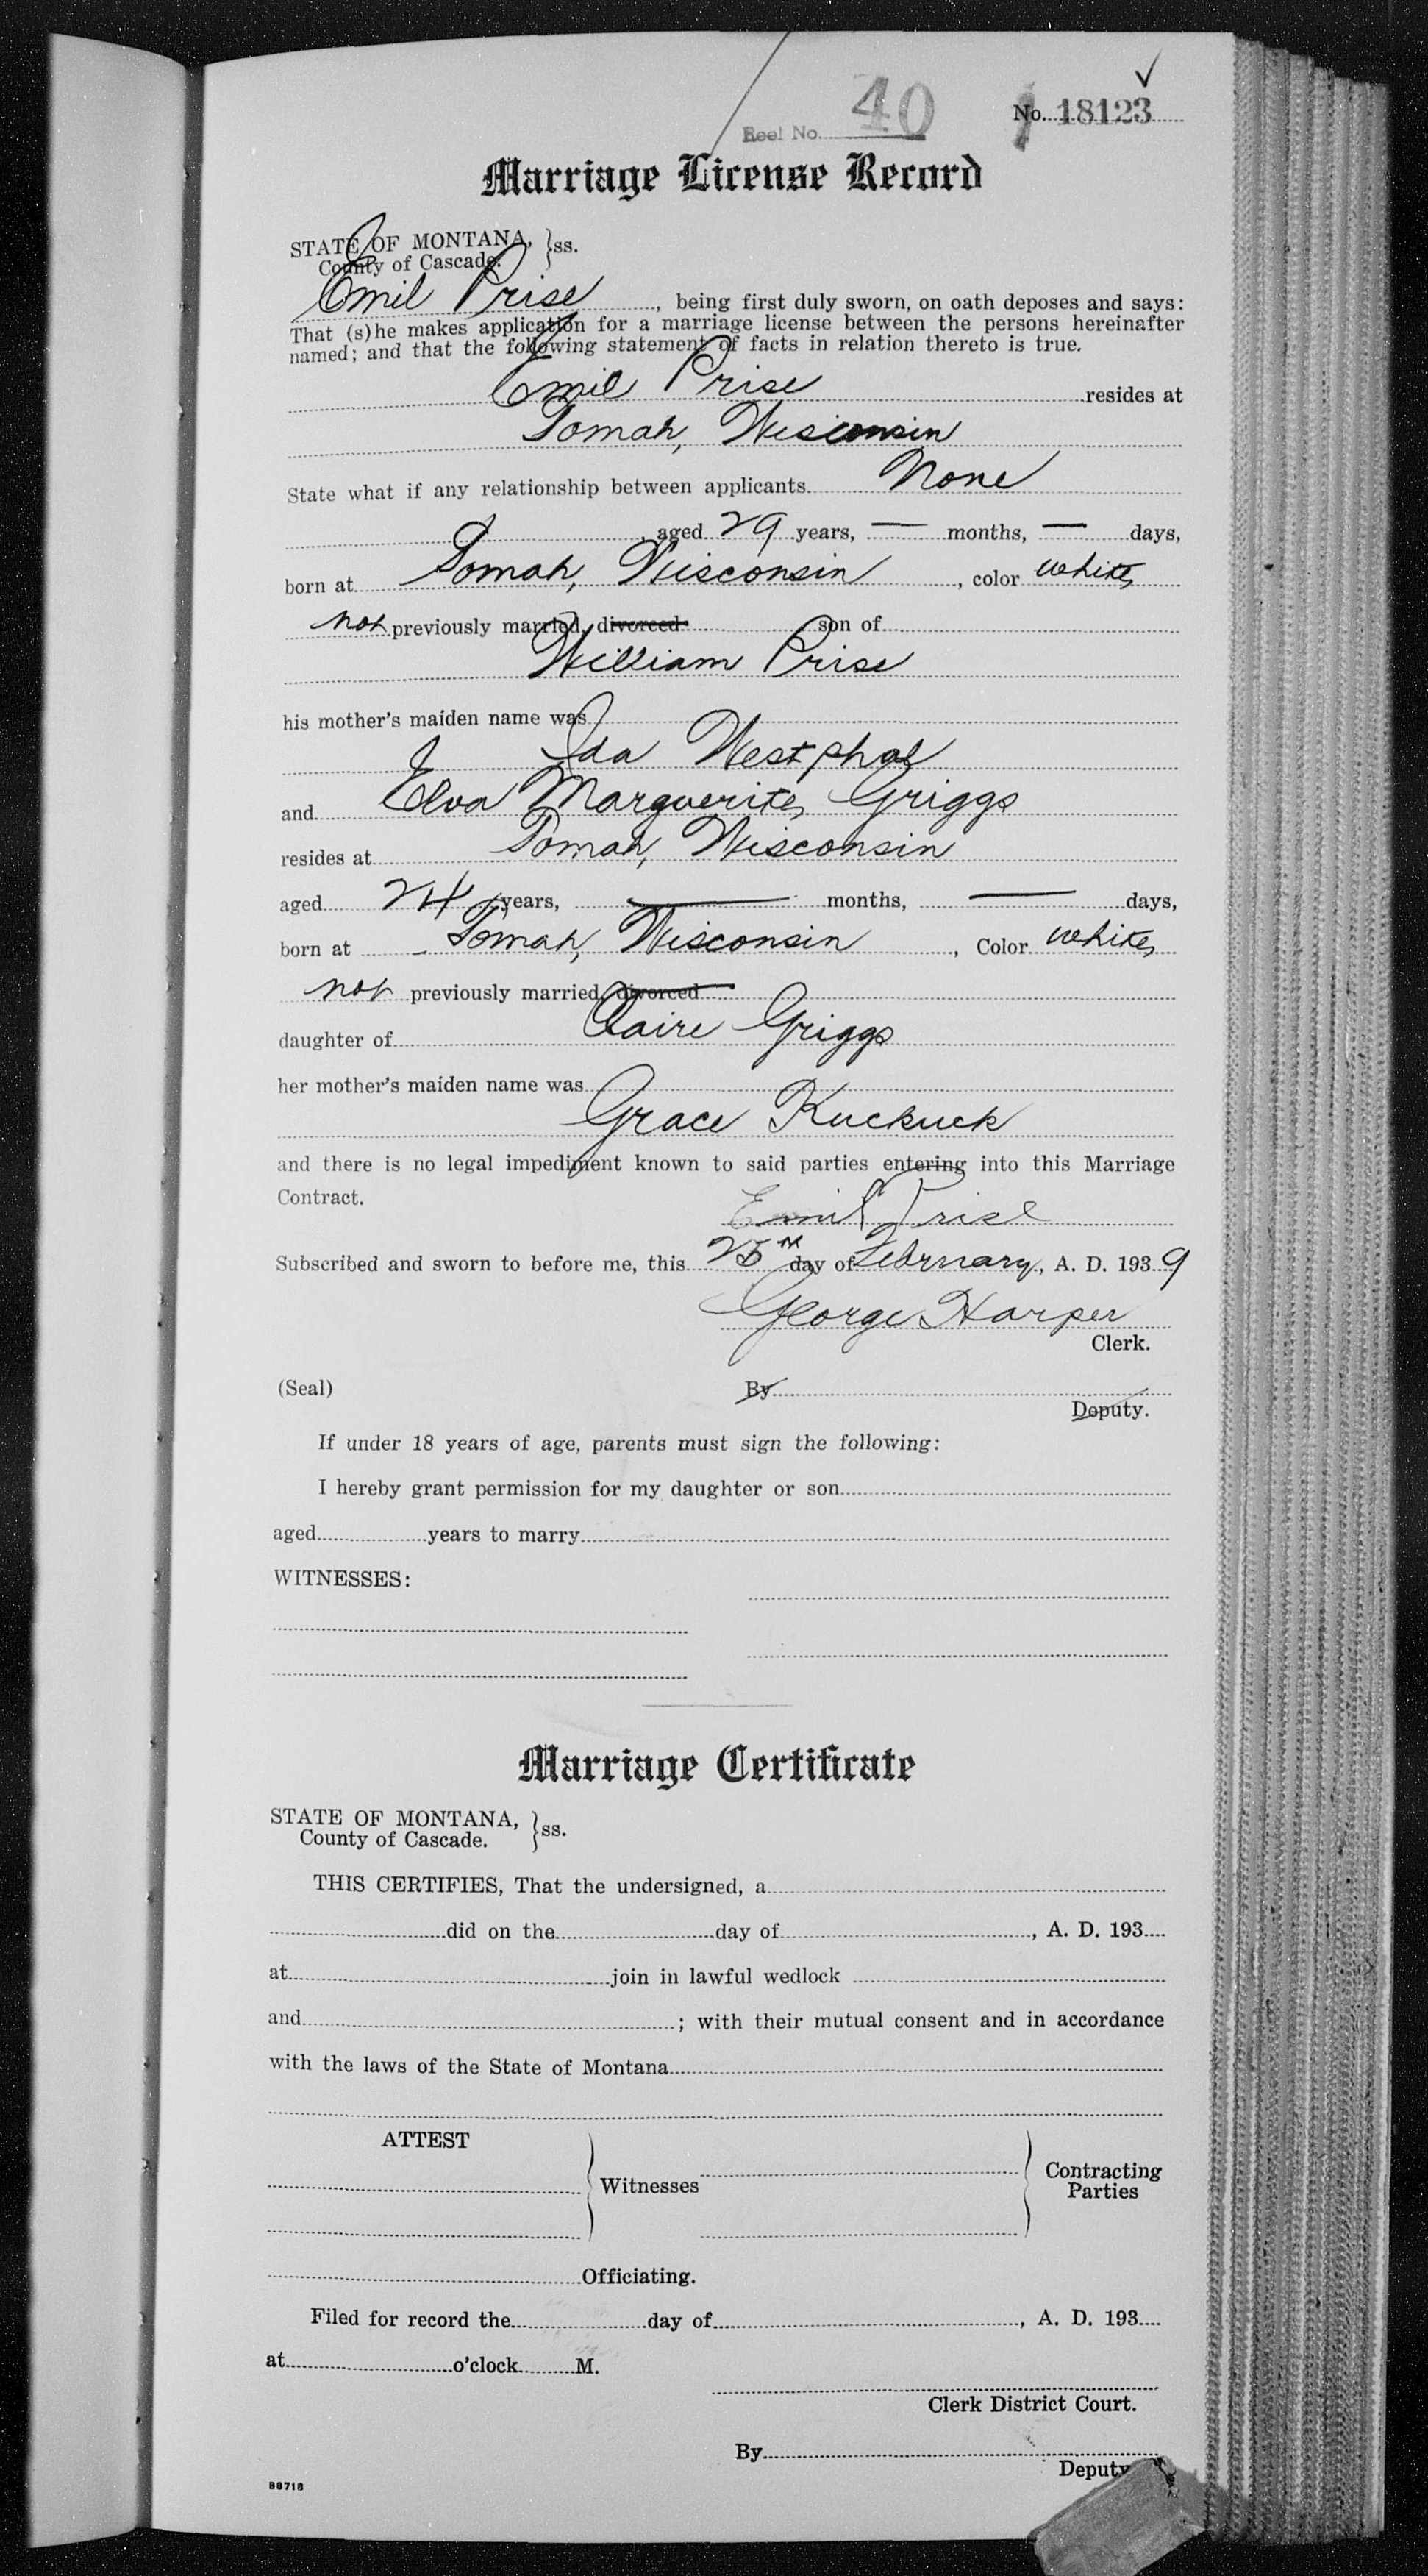 Reel No. 40 No. 18123
Marriage License Record
STATE OF MONTANA, } ss.
County of Cascade.
Emil Prise, being first duly sworn, on oath deposes and says:
That (s)he makes application for a marriage license between the persons hereinafter
named; and that the following statement of facts in relation thereto is true.
Emil Prise resides at
Tomah, Wisconsin
State what if any relationship between applicants None
, aged 29 years, — months, — days,
born at Tomah, Wisconsin, color white
not previously married, divorced son of
William Prise
his mother's maiden name was
Ida Westphal
and Elva Marguerite Griggs
resides at Tomah, Wisconsin
aged 24 years, — months, — days,
born at Tomah, Wisconsin, Color white
not previously married, divorced
daughter of Claire Griggs
her mother's maiden name was
Grace Kuckuck
and there is no legal impediment known to said parties entering into this Marriage
Contract.
Emil Prise
Subscribed and sworn to before me, this 25th day of February, A. D. 1939
George Harper
Clerk.
(Seal) By
Deputy.
If under 18 years of age, parents must sign the following:
I hereby grant permission for my daughter or son
aged years to marry
WITNESSES:
Marriage Certificate
STATE OF MONTANA, } ss.
County of Cascade.
THIS CERTIFIES, That the undersigned, a
did on the day of , A. D. 193
at join in lawful wedlock
and ; with their mutual consent and in accordance
with the laws of the State of Montana
ATTEST
Witnesses Contracting
Parties
Officiating.
Filed for record the day of , A. D. 193
at o'clock M.
Clerk District Court.
By
Deputy
B8718